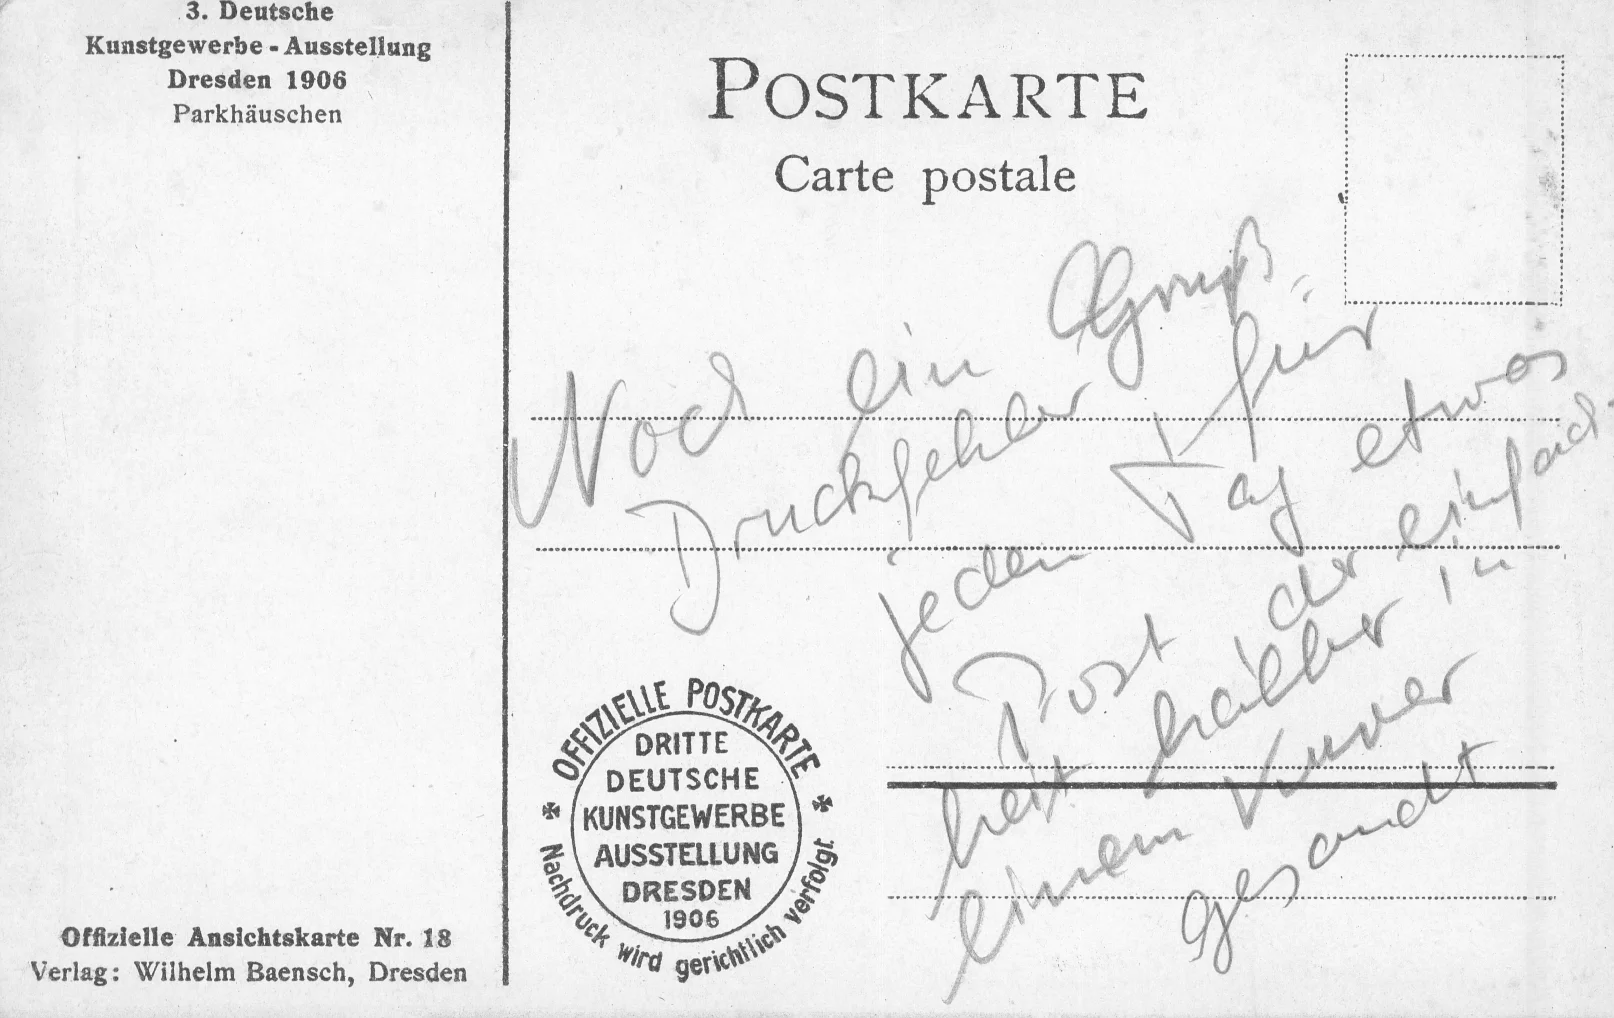 3. Deutsche
Kunstgewerbe - Ausstellung
Dresden 1906
Parkhäuschen
POSTKARTE
Carte postale
Noch ein Gruß.
Druckfehler für
jeden Tag etwas
Post der einfach-
heit halber in
einem Kuver
gesandt
OFFIZIELLE POSTKARTE
DRITTE
DEUTSCHE
KUNSTGEWERBE
AUSSTELLUNG
DRESDEN
1906
Nachdruck wird gerichtlich verfolgt
Offizielle Ansichtskarte Nr. 18
Verlag: Wilhelm Baensch, Dresden